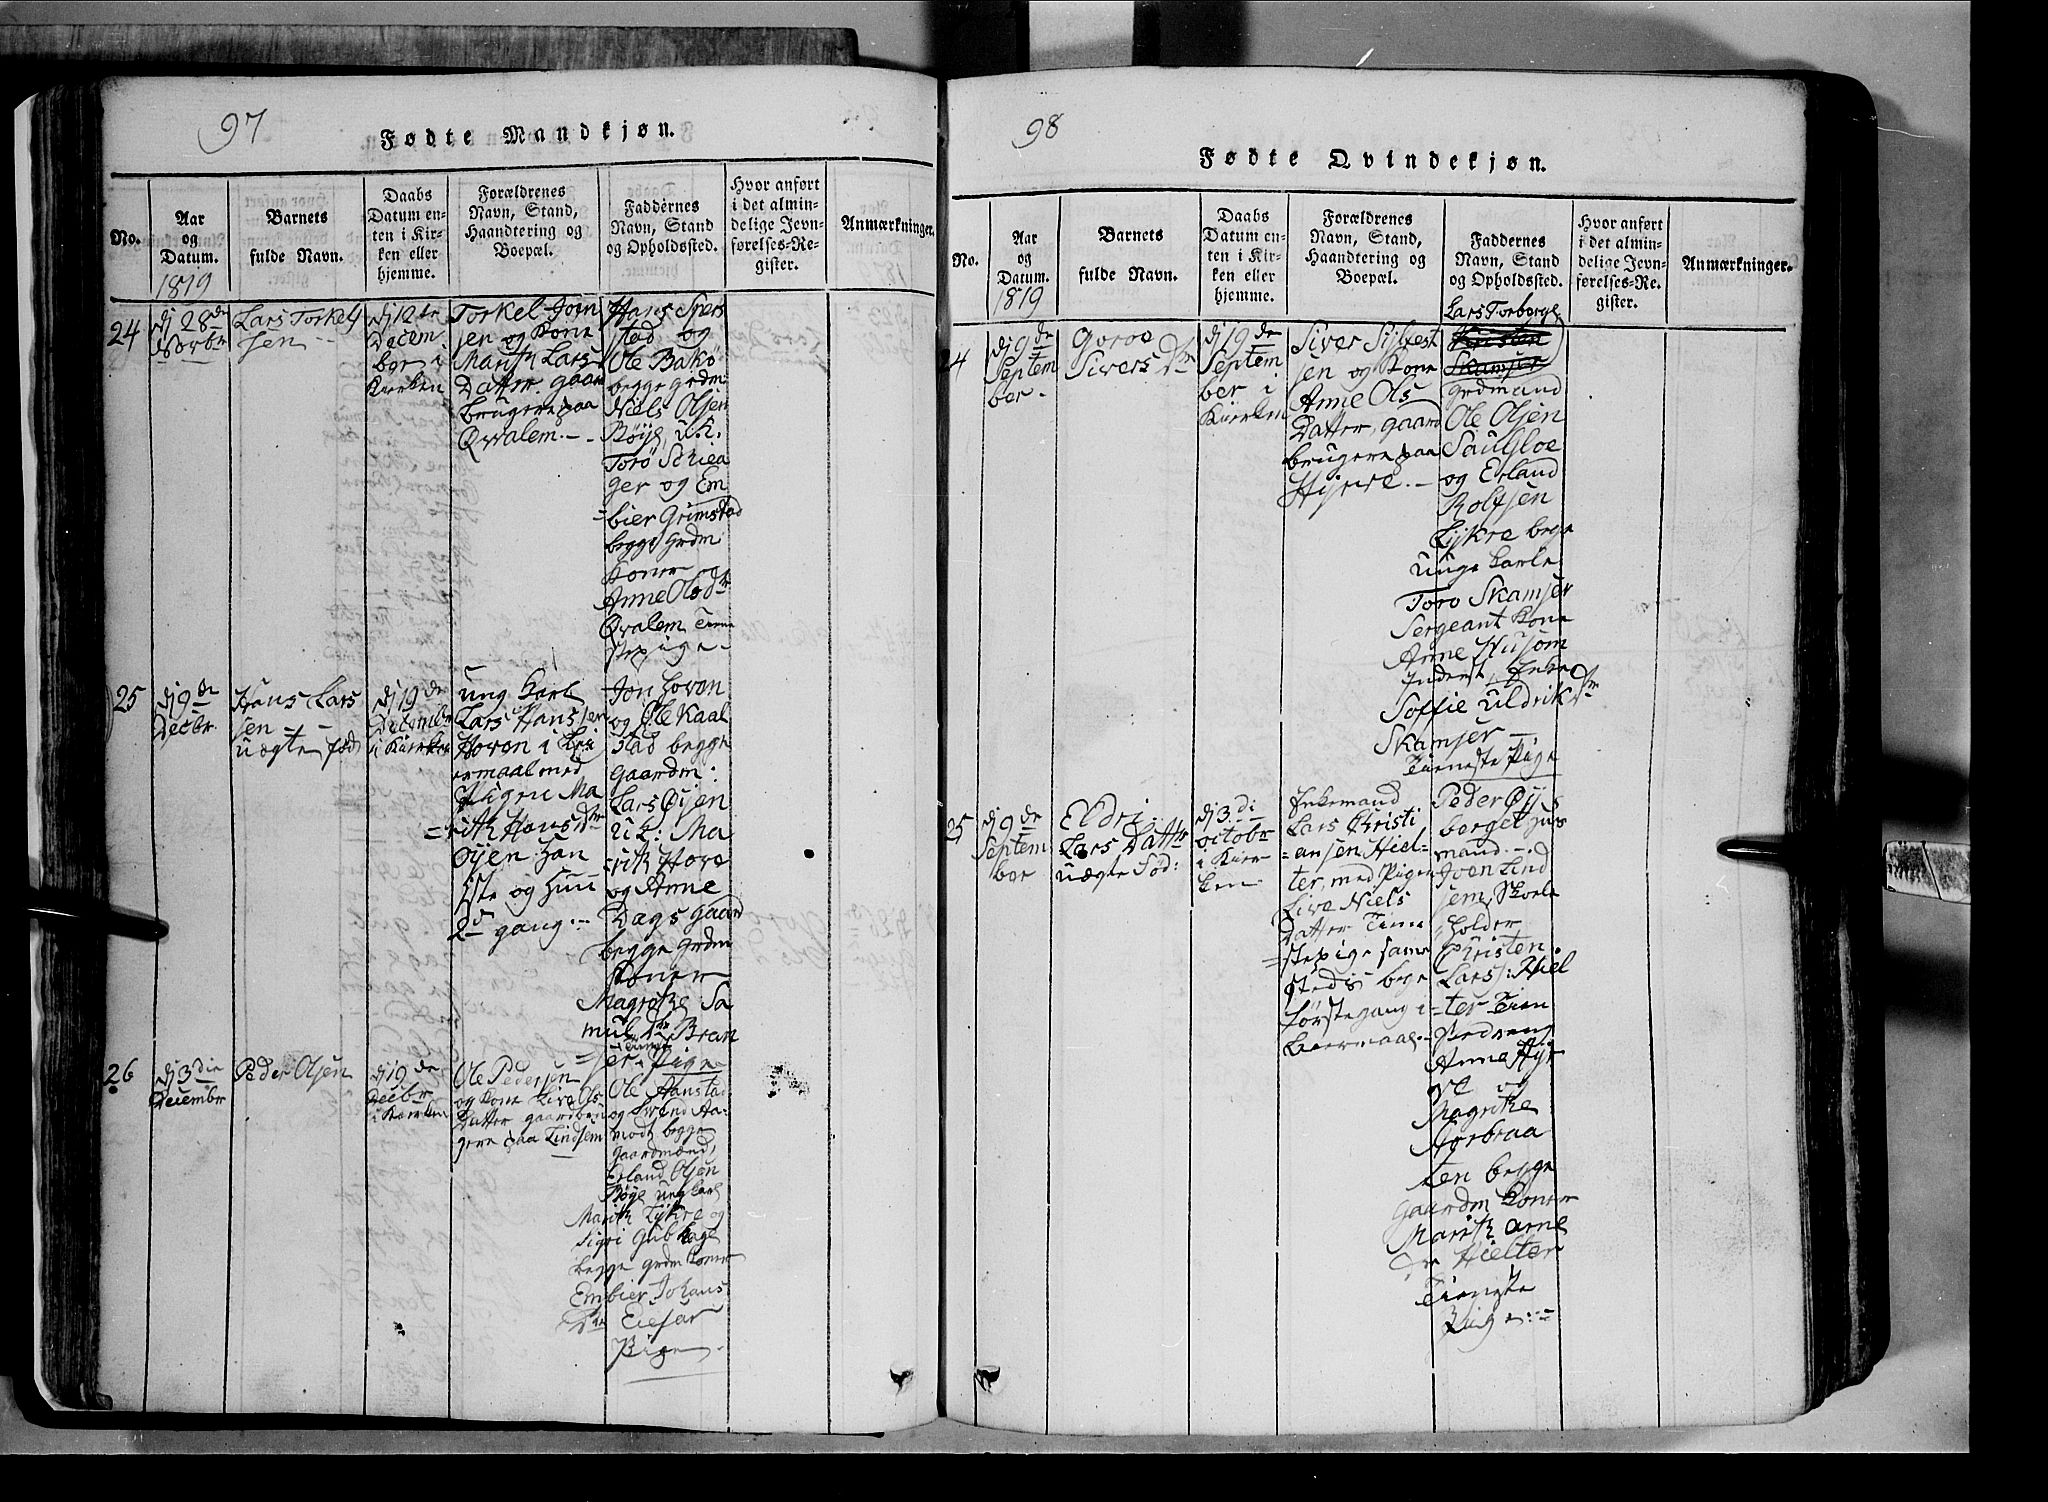 97
Fødte Mandkjøn.
No.
Aar
og
Datum.
1819
Barnets
fulde Navn.
Daabs
Datum en-
ten i Kir-
ken eller
hjemme.
Forældrenes
Navn, Stand,
Haandtering og
Boepæl.
Faddernes
Navn, Stand
og Opholdssted.
Hvor anført
i det almin-
delige Jevn-
førelses-Re-
gister.
Anmærkninger.
24
dj 28de
Novbr
Lars Torkels
sen
dj 12te
Decem
ber i
Kierken
Torkel Joen
sen og Kone
Marith Lars
Datter gaar
brugere paa
Qvalem
Hans Spers
stad og
Ole Bakø
begge grdm
Niels Olsen
Bøye u.k.
Torø Schiea
ger og Em
bier Grimstad
begge grdm
Koner og
Anne Olsdtr
Qvalem Tiene
stepige
25
dj 9de
Decbr
Hans Lars
sen
uægte fød
dj 19de
Decembr
i Kierken
ung Karl
Lars Hanssen
Hoven i Lei
ermaal med
Pigen Ma
rith Hansdtr
Øyen han
1ste og hun
2d gang
Jon Hoven
og Ole Kaal
stad begge
gaardm:
Lars Øyen
uk: Ma
rith Hove
og Anne
Dags gaard
begge grdm
Koner
Magrethe Sa
muels dtr Bran
ser Tieneste Pige
26
dj 3die
Decembr
Peder Olsen
dj 19de
Decbr
i Kierken
Ole Pedersen
og Kone Live Ols
Datter gaardbru
gere paa Lindsem
Ole Hanstad
og Svend Aa-
modt begge
gaardmænd,
Erland Olsen
Bøye ung Karl
Marith Lykre og
Sigri Gub hage
begge grdm Koner
Embier Johans
Dtr Eiesar
Pige
98
Fødte Qvindekjøn.
No.
Aar
og
Datum.
1819
Barnets
fulde Navn.
Daabs
Datum en-
ten i Kir-
ken eller
hjemme.
Forældrenes
Navn, Stand,
Haandtering og
Boepæl.
Faddernes
Navn, Stand
og Opholdssted.
Hvor anført
i det almin-
delige Jevn-
førelses-Re-
gister.
Anmærkninger.
24
dj 9de
Septem
ber
Goroe
Sivers Dtr
dj 19de
Septem
ber i
Kierken
Siver Sylfest
sen og Kone
Anne Ols
Datter, gaard
brugere paa
Hyrve
Lars Torberge
Kristen
Skamser
grdmand
Ole Olsen
Saugloe
og Erland
Rolfsen
Lykre bege
Unge Karle
Toro Skamser
Sergeant Kone
Anne Husom
Inderst Enke
Soffie Uldrik Dtr
Skamser
Tieneste Pige
25
dj 9de
Septem
ber
Eldri
Lars Datter
uægte Fød:
dj 3di
octobr
i Kier
ken
Enkemand
Lars Christi
ansen Hiel-
ter, med Pigen
Live Niels
Datter Tiene
stepige same
steds bege
første gang i
Leiermaal
Peder Øy
berget Huus
mand
Joen Lind
sem, Skole
holder
Christen
Lars: Hiel
ter Tien
stedreng
Anne Hyr
ve og
Magrethe
Horbraa
ten begge
Gaardm Koner
Marith Arne
dr Hielter
Tieneste
Pige